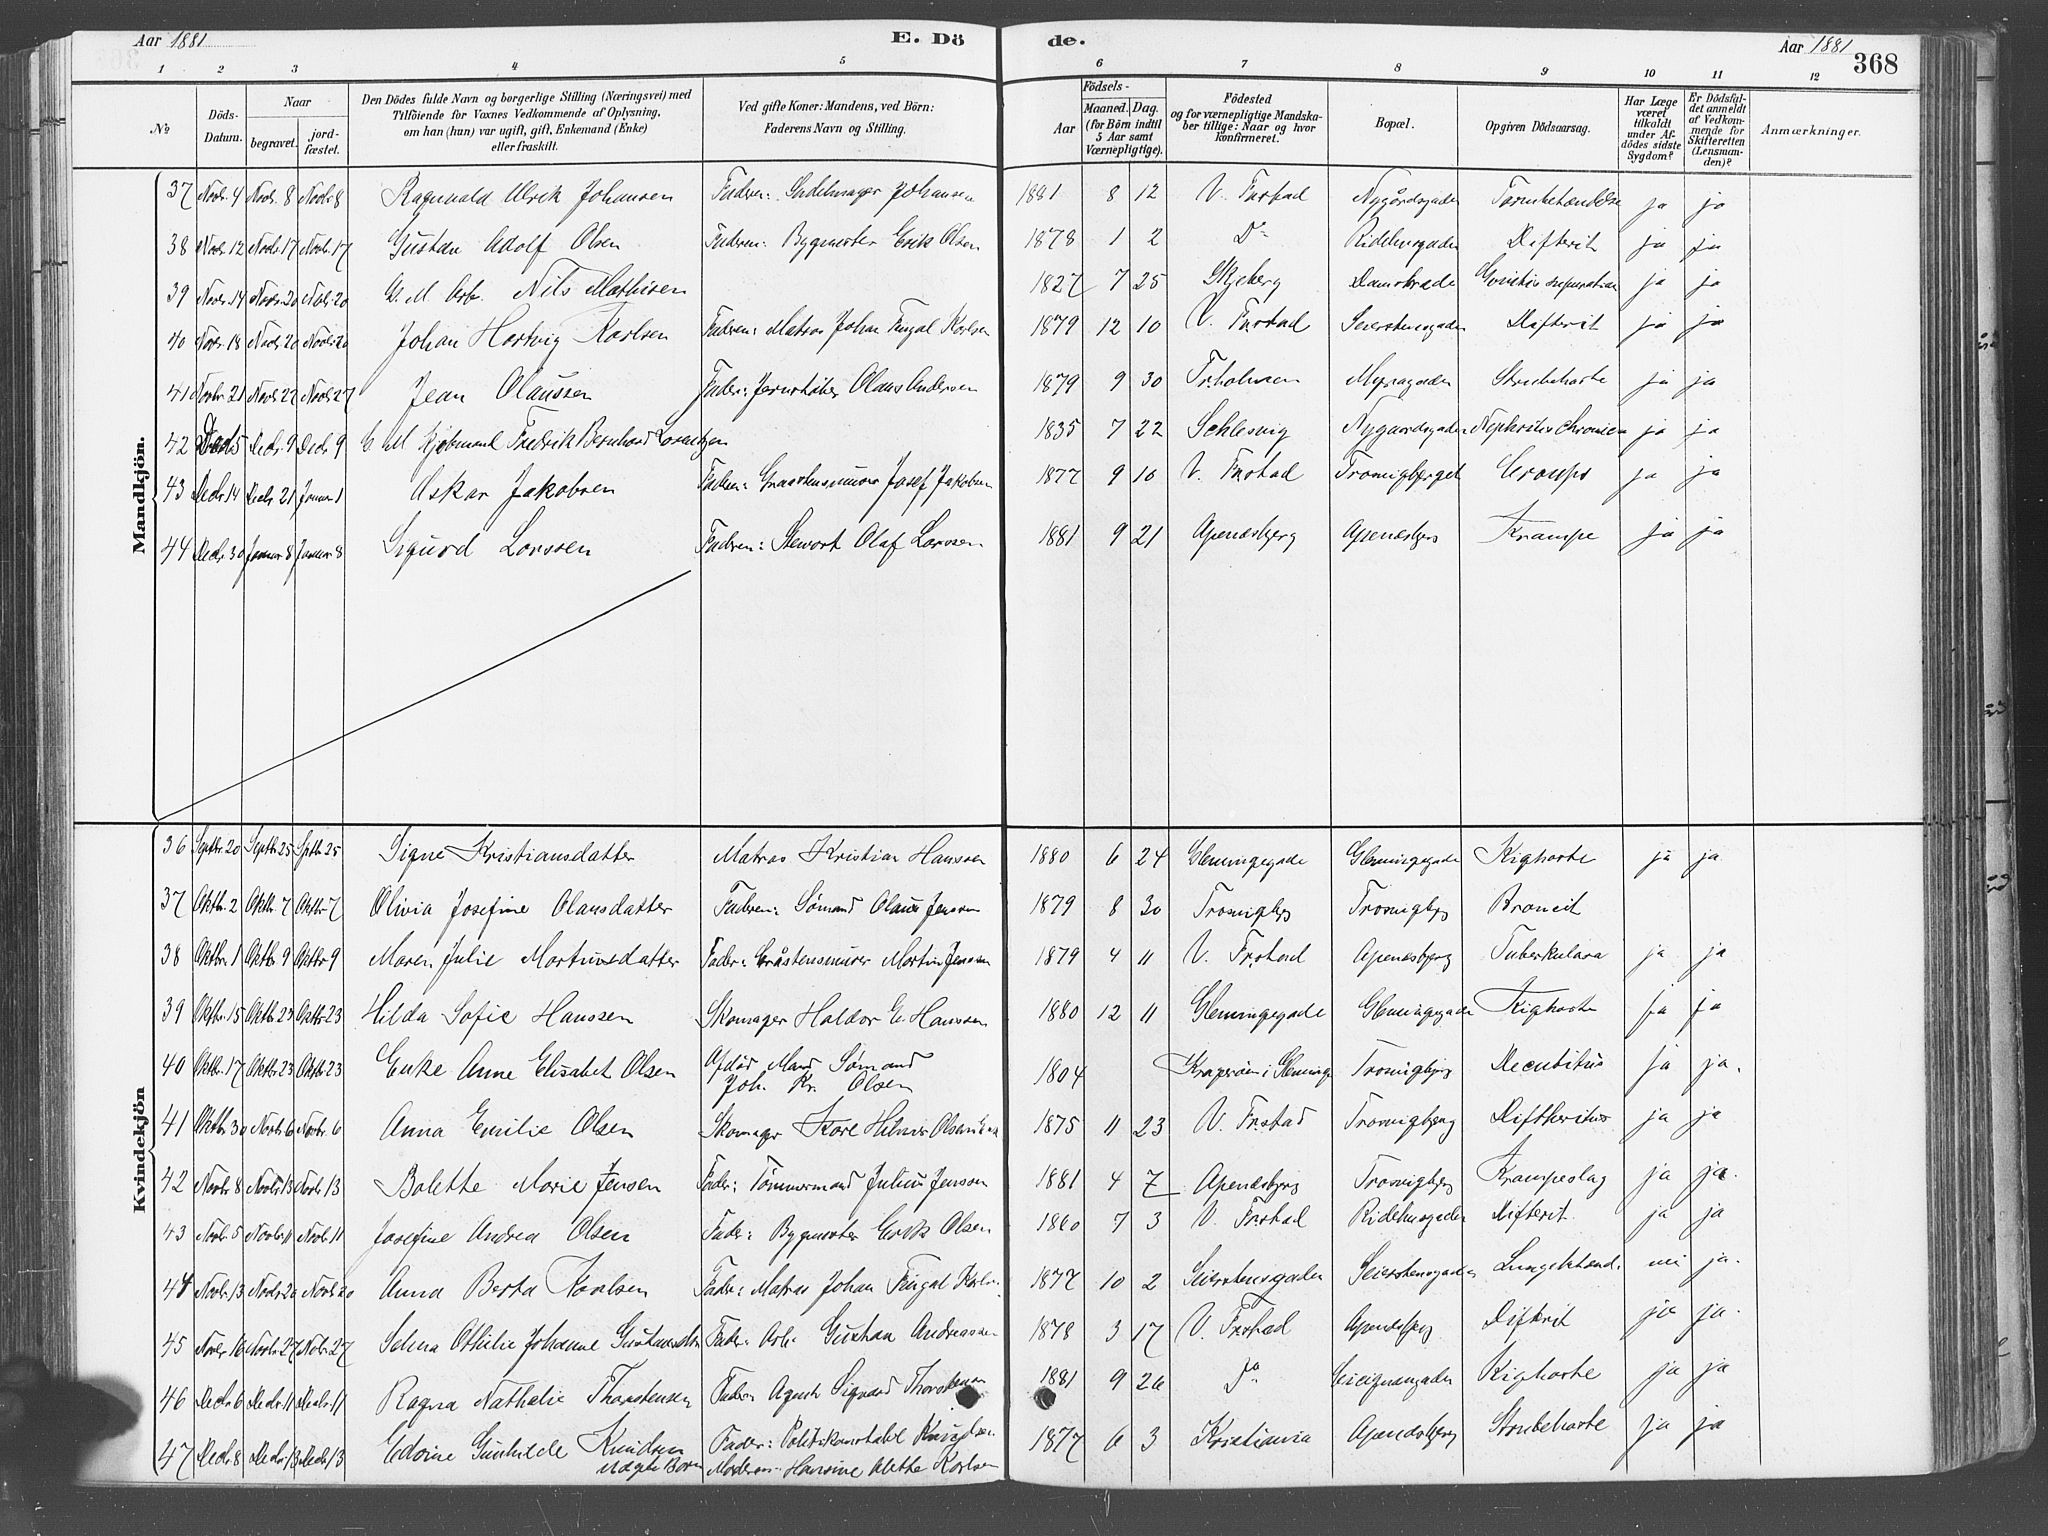 Aar 1881 E. Dö de. Aar 1881 368
1 2 3 4 5 6 7 8 9 10 11 12
№
Döds-Datum.
Naar
begravet.
jord-fæstet.
Den Dödes fulde Navn og borgerlige Stilling (Næringsvei) med
Tilföiende for Voxnes Vedkommende af Oplysning,
om han (hun) var ugift, gift, Enkemand (Enke)
eller fraskilt.
Ved gifte Koner: Mandens, ved Börn:
Faderens Navn og Stilling.
Födsels-
Aar
Maaned. Dag.
(for Börn indtil
5 Aar samt
Værnepligtige).
Födested
og for værnepligtige Mandska-
ber tillige: Naar og hvor
konfirmeret.
Bopæl.
Opgiven Dödsaarsag.
Har Læge
været
tilkaldt
under Af-
dödes sidste
Sygdom?
Er Dödsfal-
det anmeldt
af Vedkom-
mende for
Skifteretten
(Lensman-
den)?
Anmærkninger.
Mandkjön.
37 Novbr. 4 Novbr. 8 Novbr. 8 Ragnvald Ulrik Johansen Faderen: Johansen 1881 8 12 V. Frstad Nygårdsgaden ja ja
38 Novbr. 12 Novbr. 17 Novbr. 17 Gustav Adolf Olsen Faderen: Bygmester Erik Olsen 1878 1 2 Do Ridehusgaden Difterit ja ja
39 Novbr. 14 Novbr. 20 Novbr. 20 G. M. Arb. Nils Mathisen 1827 7 25 Skjeberg Damstræde ja ja
40 Novbr. 18 Novbr. 20 Novbr. 20 Johan Hartvig Karlsen Faderen: Matros Johan Fingal Karlsen 1879 12 10 V. Frstad Seierstensgaden Difterit ja ja
41 Novbr. 21 Novbr. 27 Novbr. 27 Jean Olaussen Fader: Jernstøber Olaus Andersen 1879 9 30 Fr.holmen Myragaden Strubehoste ja ja
42 Decbr. 5 Decbr. 9 Decbr. 9 G. M. Kjøbmand Fredrik Bernhard Lorentzen 1835 7 22 Schlesvig Nygaardsgaden Nephritis chronica ja ja
43 Decbr. 14 Decbr. 21 Januar 1 Oskar Jakobsen Faderen: Graastensmurer Josef Jakobsen 1877 9 10 V. Frstad Trosvigberget Croups ja ja
44 Decbr. 30 Januar 8 Januar 8 Sigurd Larssen Faderen: Stewart Olaf Larssen 1881 9 21 Apenæsbjerg Apenæsbjerg Krampe ja ja
Kvindekjön
36 Septbr. 20 Septbr. 25 Septbr. 25 Signe Kristiansdatter Matros Kristian Hanssen 1880 6 24 Glemmingegade Glemmingegade Kighoste ja ja
37 Oktbr. 2 Oktbr. 7 Oktbr. 7 Olivia Josefine Olausdatter Faderen: Sømand Olaus Jensen 1879 8 30 Trosvigbjg Trosvigbjg Broncit
38 Oktbr. 1 Oktbr. 9 Oktbr. 9 Maren Julie Martinsdatter Fader: Gråstensmurer Martin Jensen 1879 4 11 V. Frstad Apenæsbjerg Tuberkulosa ja ja
39 Oktbr. 15 Oktbr. 23 Oktbr. 23 Hilda Sofie Hanssen Skomager Haldor E. Hanssen 1880 12 11 Glemmingegade Glemmingegaden Kighoste ja ja
40 Oktbr. 17 Oktbr. 23 Oktbr. 23 Enke Anne Elisabet Olsen Afdød Mand Sømand
Joh. Kr. Olsen 1804 Kragerøen i Glemminge Trosvigbjerg Decubitus ja ja.
41 Oktbr. 30 Novbr. 6 Novbr. 6 Anna Emilie Olsen Skomager Kare Hilmer Olsen 1875 11 23 V. Frstad Trosvigbjerg Diftheritus ja ja
42 Novbr. 8 Novbr. 13 Novbr. 13 Bolette Marie Jensen Fader: Tømmermand Julius Jensen 1881 4 7 Apenæsbjerg Trosvigbjerg Krampeslag ja ja.
43 Novbr. 5 Novbr. 11 Novbr. 11 Josefine Andrea Olsen Fader: Bygmester Erik Olsen 1880 7 3 V. Frstad Ridehusgaden Difterit. ja ja
44 Novbr. 13 Novbr. 20 Novbr. 20 Anna Berta Karlsen Fader: Matros Johan Fingal Karls. 1877 10 2 Seierstensgaden Seierstensgaden nei ja.
45 Novbr. 16 Novbr. 27 Novbr. 27 Selma Othilie Johanne Fader: Arb. Gustav Andreassen 1878 3 17 V. Frstad Apenæsbjerg Difterit ja ja.
46 Decbr. 6 Decbr. 11 Decbr. 11 Ragna Nathalie Thorstensen Fader: Agent Sigvard Thorstensen 1881 9 26 Do Kighoste ja ja
47 Decbr. 8 Decbr. 13 Decbr. 13 Edvine Gunhilde Knudsen Fader: Politikonstabel
uægte Barn Moderen: Hansine Alette Karlsen 1877 6 3 Kristiania Apenæsbjerg Strubehoste ja ja